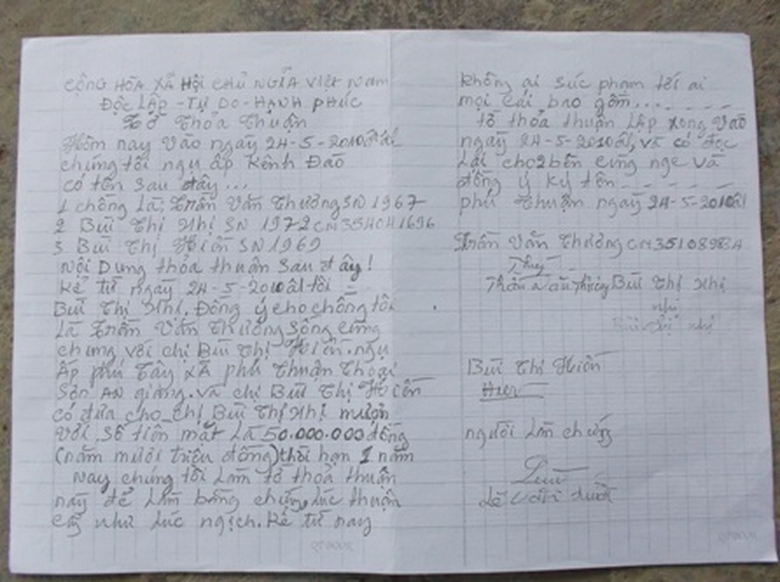 CỘNG HÒA XÃ HỘI CHỦ NGHĨA VIỆT NAM
ĐỘC LẬP - TỰ DO - HẠNH PHÚC
Tờ Thỏa Thuận
Hôm nay vào ngày 24-5-2010 âl tại
chúng tôi ngụ ấp Kênh Đào
có tên sau đây...
1 chồng là: Trần Văn Thưởng SN 1967
2 Bùi Thị Nhị SN 1972 CM 351041696
3 Bùi Thị Hiền SN 1969
Nội Dung thỏa thuận sau đây!
Kể từ ngày 24-5-2010 âl tôi
Bùi Thị Nhị. Đồng ý cho chồng tôi
Là Trần Văn Thưởng sống cùng
chung với chị Bùi Thị Hiền. ngụ
Ấp phú Tây xã phú Thuận Thoại
Sơn AN giang. và chị Bùi Thị Hiền
có đưa cho chị Bùi Thị Nhị mượn
với số tiền mặt Là 50.000.000 đồng
(năm mươi triệu đồng) thời hạn 1 năm
Nay chúng tôi Làm tờ thỏa thuận
này để Làm bằng chứng, lúc thuận
cũng như lúc nghịch. Kể từ nay
không ai sức phạm tới ai
mọi cái bao gồm...
tờ thỏa thuận Lập xong vào
ngày 24-5-2010 âl, và có đọc
Lại cho 2 bên cùng nge và
đồng ý ký tên
phú Thuận ngày 24-5-2010 âl
Trần Văn Thưởng CM 3510898
Bùi Thị Nhị
nhị
Bùi thị nhị
Bùi Thị Hiền
Hiền
người Làm chứng
Lê Văn